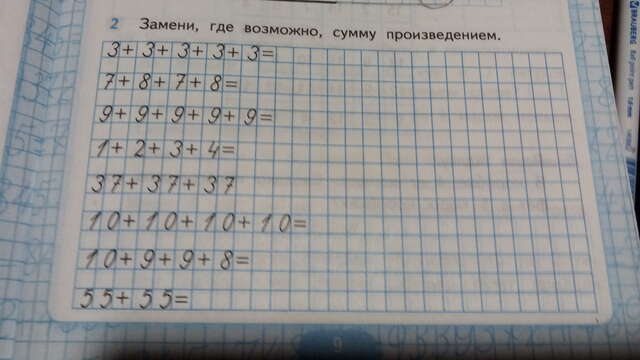 2 Замени, где возможно, сумму произведением.
3+3+3+3+3=
7+8+7+8=
9+9+9+9+9=
1+2+3+4=
37+37+37
10+10+10+10=
10+9+9+8=
55+55=
9
BRAUBERG